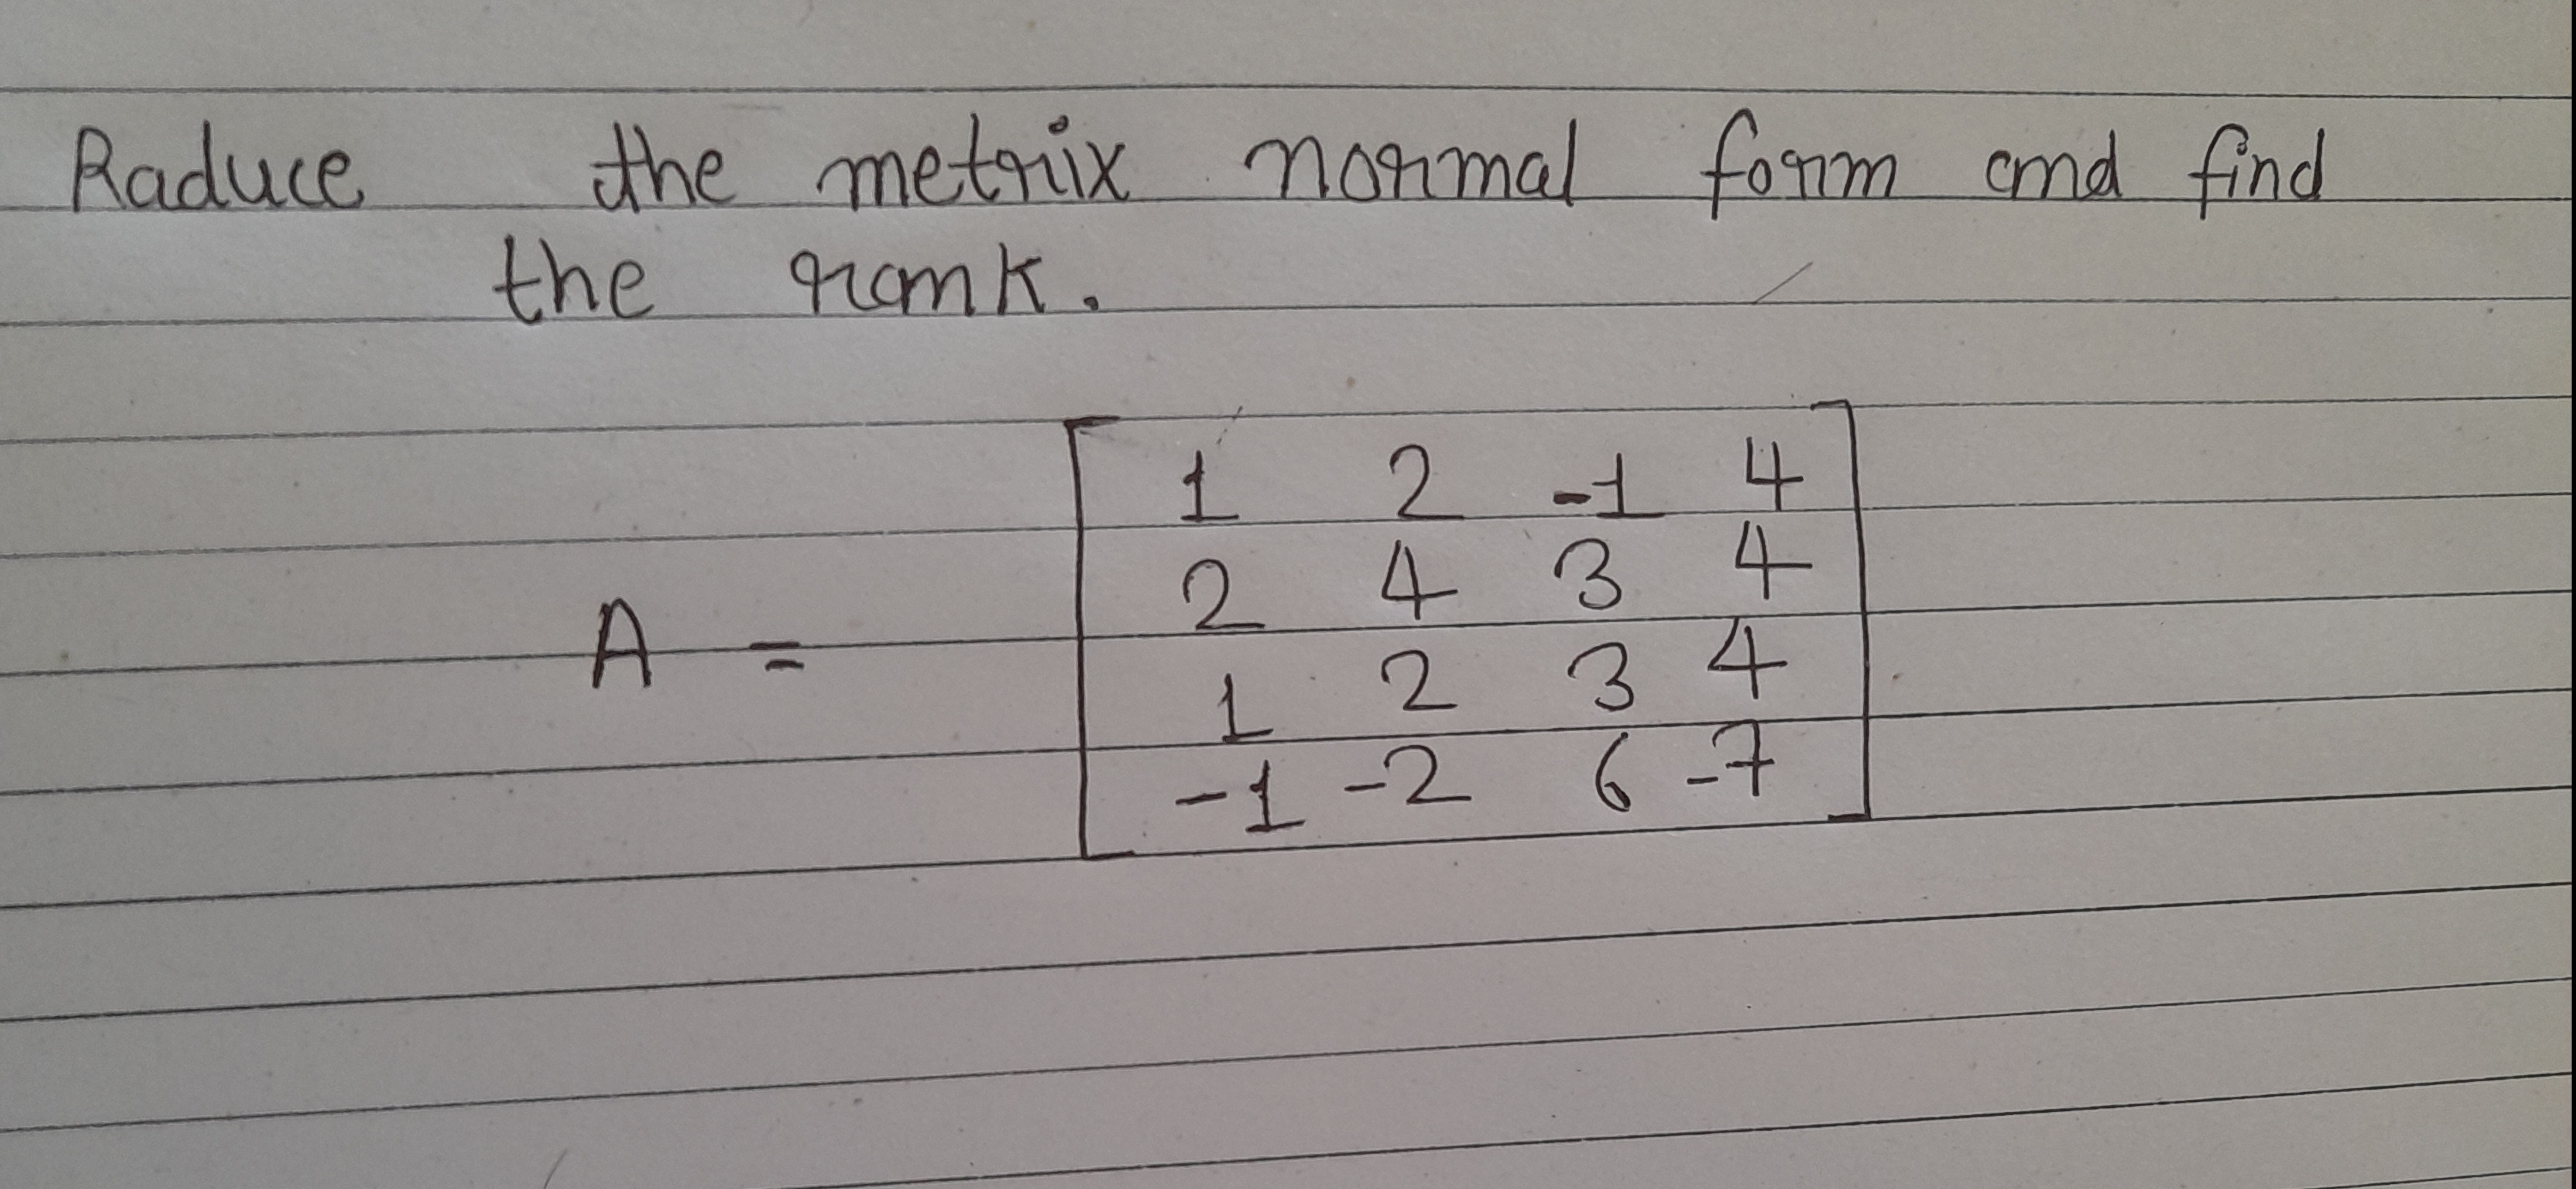 Raduce the metrix normal form and find
the rank.
A = [
1 2 -1 4
2 4 3 4
1 2 3 4
-1 -2 6 -7
]